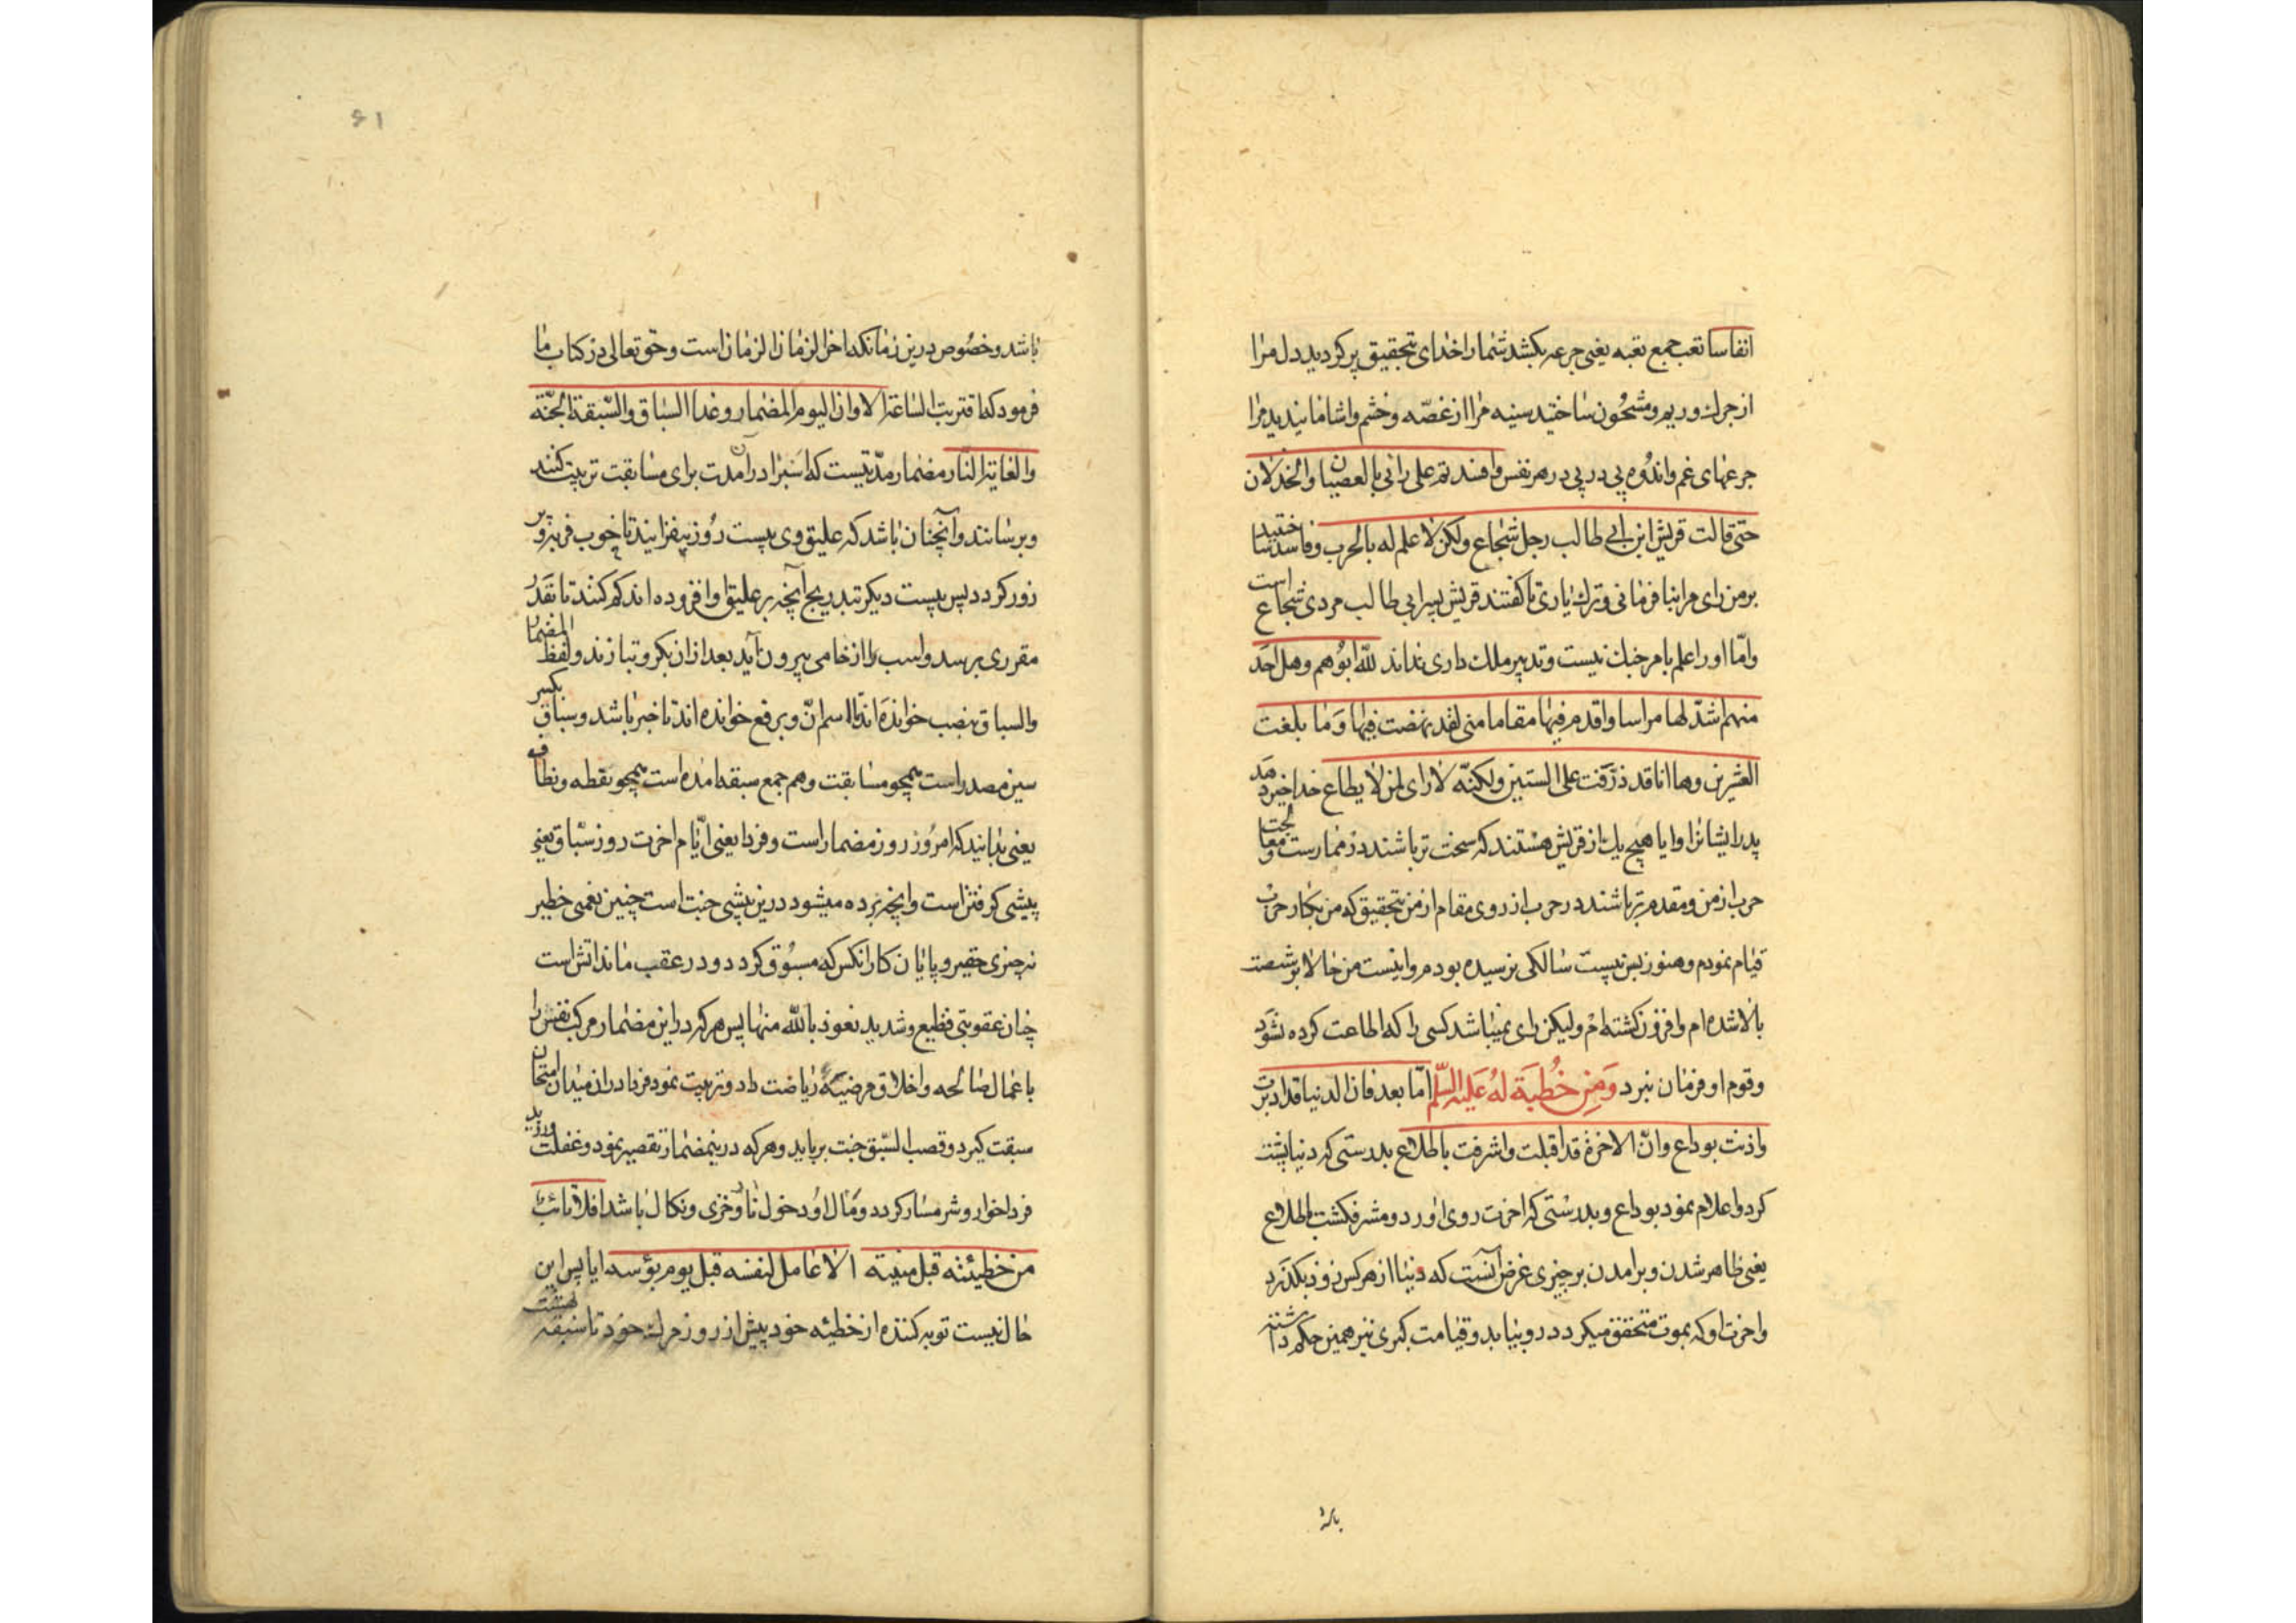 انفاسا نغب جمع نغبه یعنی جرعه بکشد شما را خدای بتحقیق پر کردید دل مرا
از چرك و ریم و مشحون ساختید سینه مرا از غصّه و خشم و اشامانیدید مرا
جرعهای غم و اندُوه پی در پی در هر نفس وافسدتم علی رائی بالعصیان والخذلان
حتّی قالت قریش ابن ابی طالب رجل شجاع ولکن لا علم له بالحرب و فاسد ساختید
بر من رای مرا بنا فرمانی و ترك یاری تا کفتند قریش پسر ابی طالب مردی شجاع است
و امّا او را علم بامر جنك نیست و تدبیر ملك داری نداند للّه ابُوهم وهل احَد
منهم اشدّ لها مراسا واقدم فیها مقاما منی لقد نهضت فیها وَما بلغت
العشرین وها انا قد ذرّفت علی الستین ولکنّه لا رای لمن لا یطاع خدا خیر دهد
پدر ایشانرا و ایا هیچ یك از قریش هستند که سخت تر باشند در ممارست و معالجت
حرب از من و مقدم تر باشند در حرب از روی مقام از من بتحقیق که من بکار حرب
قیام نمودم و هنوز بسن بیست سالکی نرسیده بودم و اینست من حالا بر شصت
بالا شده ام و افزون کشته امْ ولیکن رای نمیباشد کسی را که اطاعت کرده نشوَد
و قوم او فرمان نبرد وَمِن خُطبَة لهُ عَلیه السّلم امّا بعد فان الدنیا قد ادبرت
واذنت بوداع وانّ الاخرة قد اقبلت واشرفت باطلاع بدرستی که دنیا پشت
کرد و اعلام نمود بوداع و بدرستی که اخرت روی اورد و مشرف کشت باطلاع
یعنی ظاهر شدن و برامدن بر چیزی غرض آنست که دنیا از هر کس زود بکذرد
و اخرت او که بموت متحقق میکردد رو بنیابد و قیامت کبری نیز همین حکم داشته
باشد
باشد و خصُوص درین زمانکه اخر الزمان الزمان است و حق تعالی در کتاب ما
فرمود که اقتربت الساعة الا وان الیوم المضمار وغدا السّباق والسّبقة الجنّة
والغایة النّار مضمار مدّتیست که اسبرا در آن مدت برای مسابقت تربیت کنند
و برسانند و آنچنان باشد که علیق وی بیست رُوز بیفزایند تا خوب فربه و پر
زور کردد پس بیست دیکر بتدریج آنچه بر علیق او افزوده اند کم کنند تا بقدر
مقرری برسد و اسب را از خامی بیرون آید بعد از ان بکر و تبازند و لفظ المضمار
والسباق بنصب خوانده اند تا اسم انّ و برفع خوانده اند تا خبر باشد و سباق بکسر
سین مصدر است همچو مسابقت و هم جمع سبقه امده است همچو نقطه و نطاف
یعنی بدانید که امرُوز روز مضمار است و فردا یعنی ایّام اخرت روز سّباق یعنی
پیشی کرفتن است و آنچه برده میشود درین پیشی جنت است چنین نعمتی خطیر
نه چیزی حقیر و پایان کار انکس که مسبُوق کردد و در عقب ماند اتش است
چنان عقوبتی فظیع و شدید نعوذ بالله منها پس هر که در این مضمار مرکب نفس را
باعمال صالحه و اخلاق مرضیّه ریاضت داد و تربیت نمود فردا در ان میدان امتحان
سبقت کیرد و قصب السّبق جنت برباید و هر که درینمضمار تقصیر نمود و غفلت ورزید
فردا خوار و شرمسار کردد و مَال او دخول نار و خزی و نکال باشد افلا تائب
من خطیئته قبل منیته الا عامل لنفسه قبل یوم بؤسه ایا پس این
حال نیست توبه کننده از خطیئه خود پیش از روز مرك خود تا سبقه
۶۱